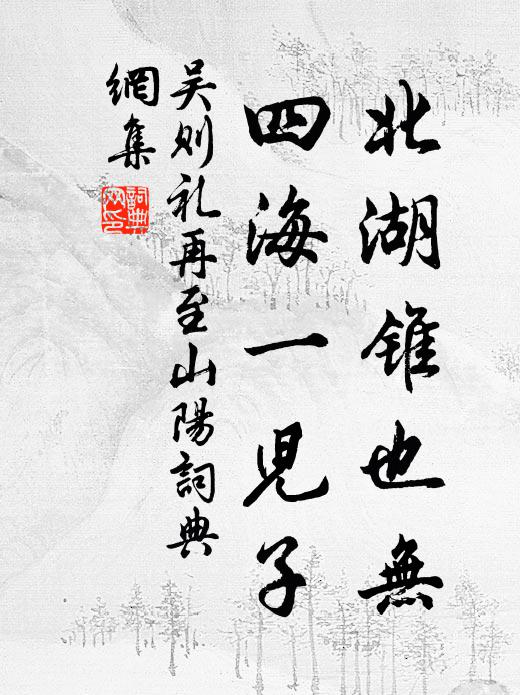 北湖锥也無
四海一兒子
吴则礼再至山陽詞典
網集
詞典網印